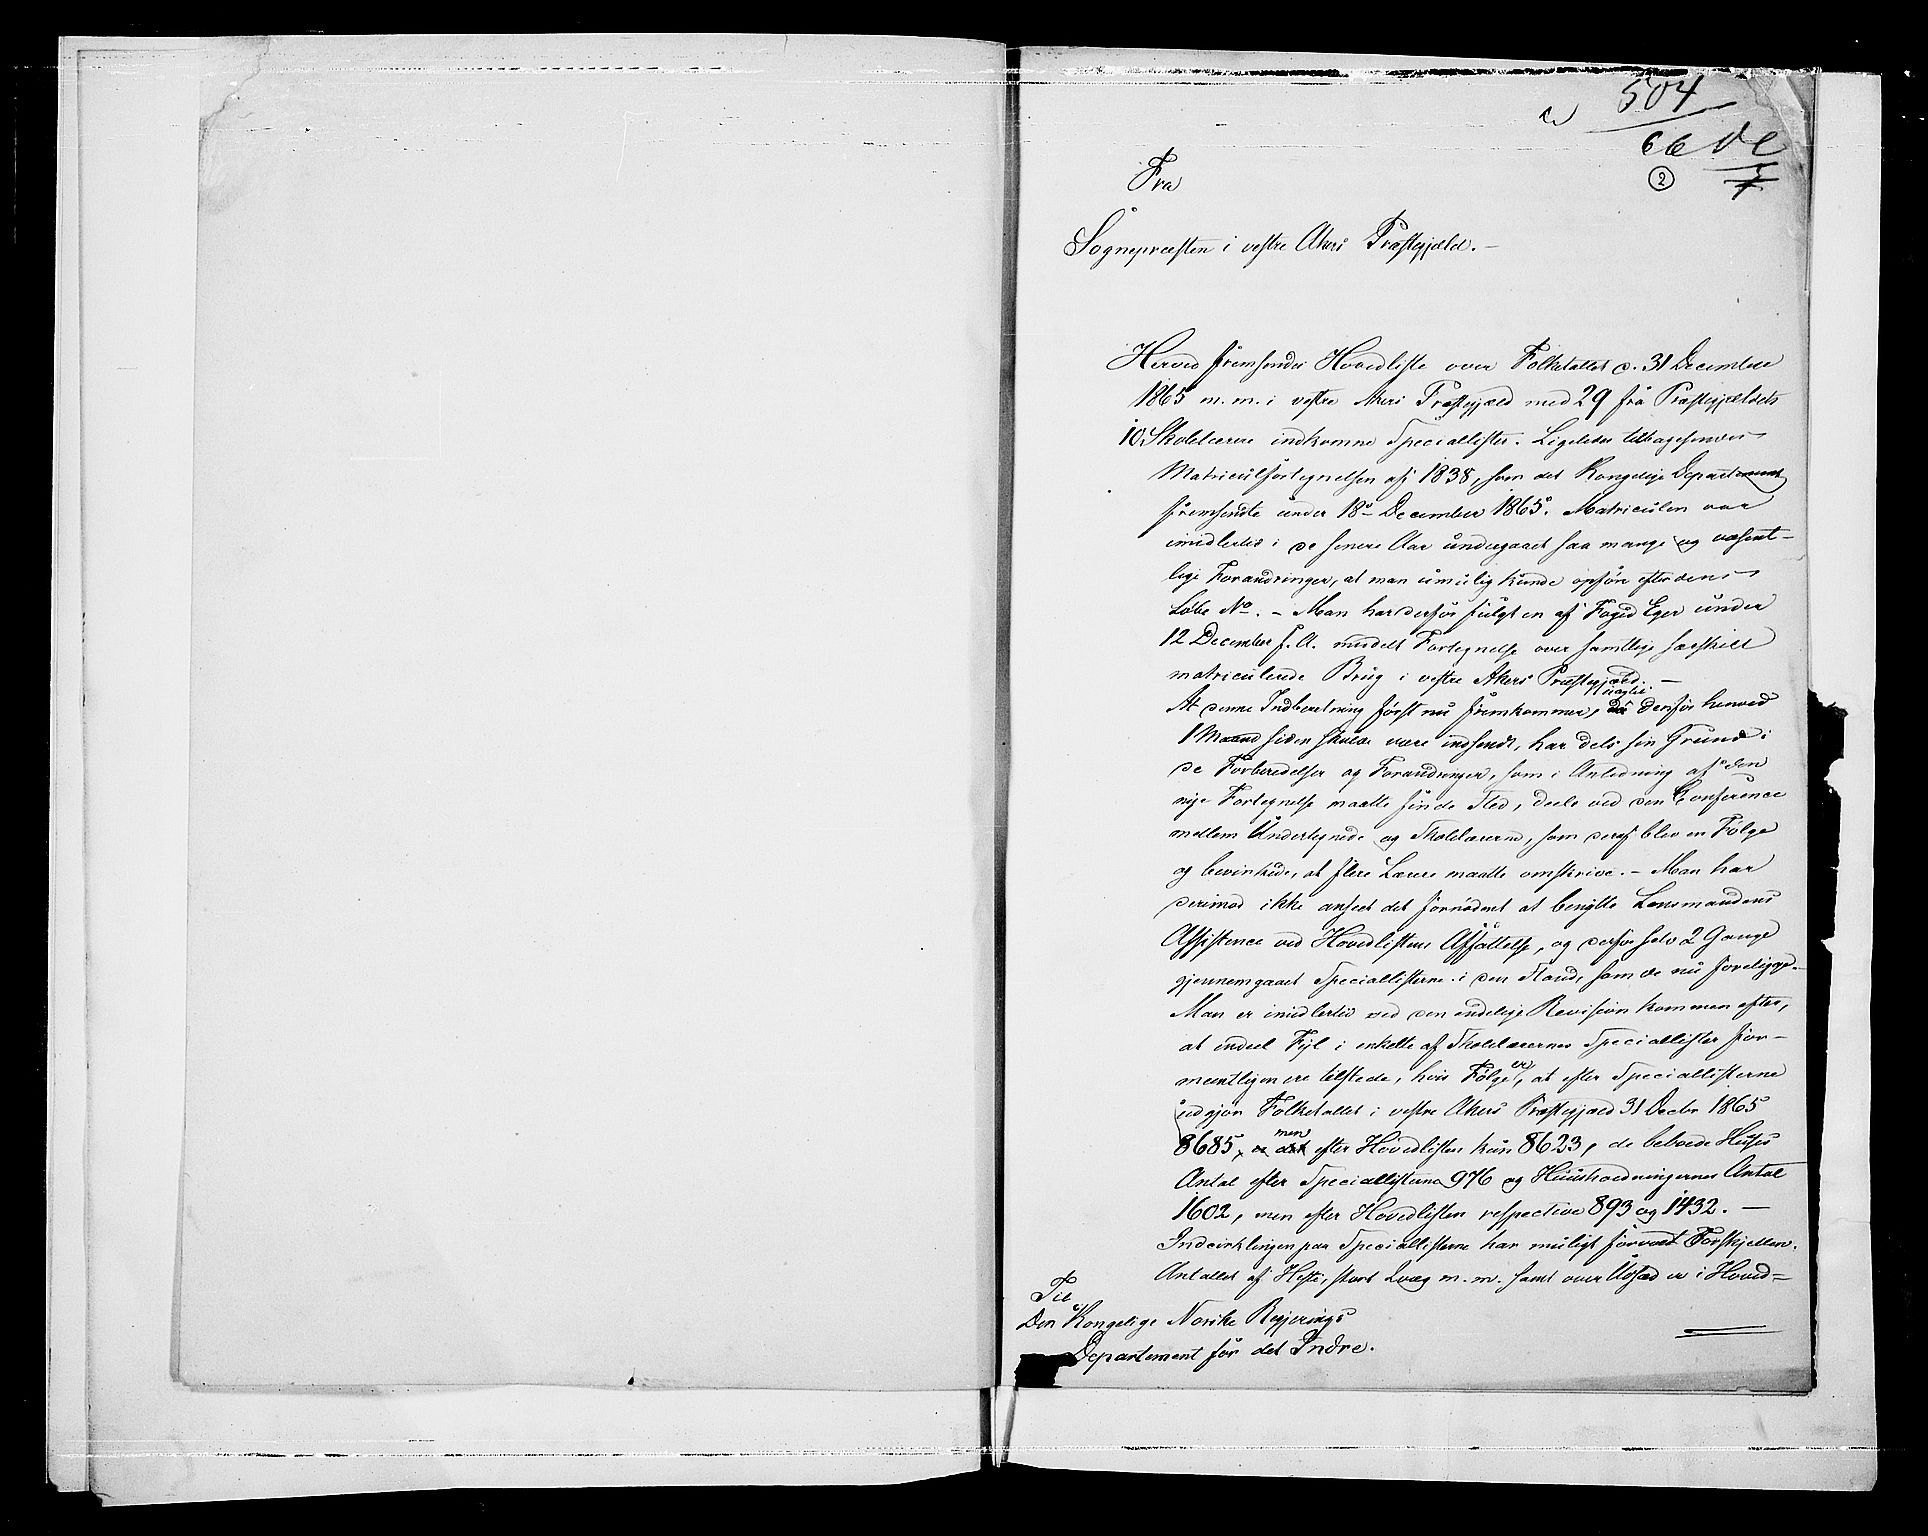 504
66
2
Fra
Sognepræsten i vestre Akers Præstegjæld. —
Herved fremsendes Hovedliste over Folketallet d. 31 December
1865 m. m. i vestre Akers Præstegjæld med 29 fra Præstegjældets
10 Skolelærere indkomne Speciallister. Ligeledes tilbagesendes
Matriculfortegnelsen af 1838, som det Kongelige Departement
fremsendte under 18de December 1865. Matriculen var
imidlertid i de senere Aar undergaaet saa mange og væsent-
lige Forandringer, at man umulig kunde opføre efter dens
Løbe No. – Man har derfor fulgt en af Foged Eger under
12 December f. A. meddelt Fortegnelse over samtlige særskilt
matriculerede Brug i vestre Akers Præstegjæld. —
At denne Indberetning først nu fremkommer, derfor henved
1 Maaned siden skulde være indsendt, har dels sin Grund i
de Forberedelser og Forandringer, som i Anledning af den
nye Fortegnelse maatte finde Sted, deels ved den Conference
mellem Undertegnede og Skolelærerne, som deraf blev en Følge
og bevirkede, at flere Lærere maatte omskrive. – Man har
derimod ikke anseet det fornødent at benytte Lensmandens
Assistence ved Hovedlistens Affattelse, og derfor selv 2 Gange
gjennemgaaet Speciallisterne i den Stand, som de nu foreligge.
Man er imidlertid ved den endelige Revision kommen efter,
at endeel Fejl i enkelte af Skolelærernes Speciallister for-
mentligen ere tilstede, hvis Følge er, at efter Speciallisterne
udgjør Folketallet i vestre Akers Præstegjæld 31 Decbr 1865
8685, men efter Hovedlisten kun 8623, de beboede Huses
Antal efter Speciallisterne 976 og Huusholdningernes Antal
1602, men efter Hovedlisten respective 893 og 1432. —
Indcirklingen paa Speciallisterne har muligt forvoldt Forskjellen.
Antallet af Heste, stort Qvæg m. m. samt over Udsæd er i Hoved=
Til
Den Kongelige Norske Regjerings
Departement for det Indre.